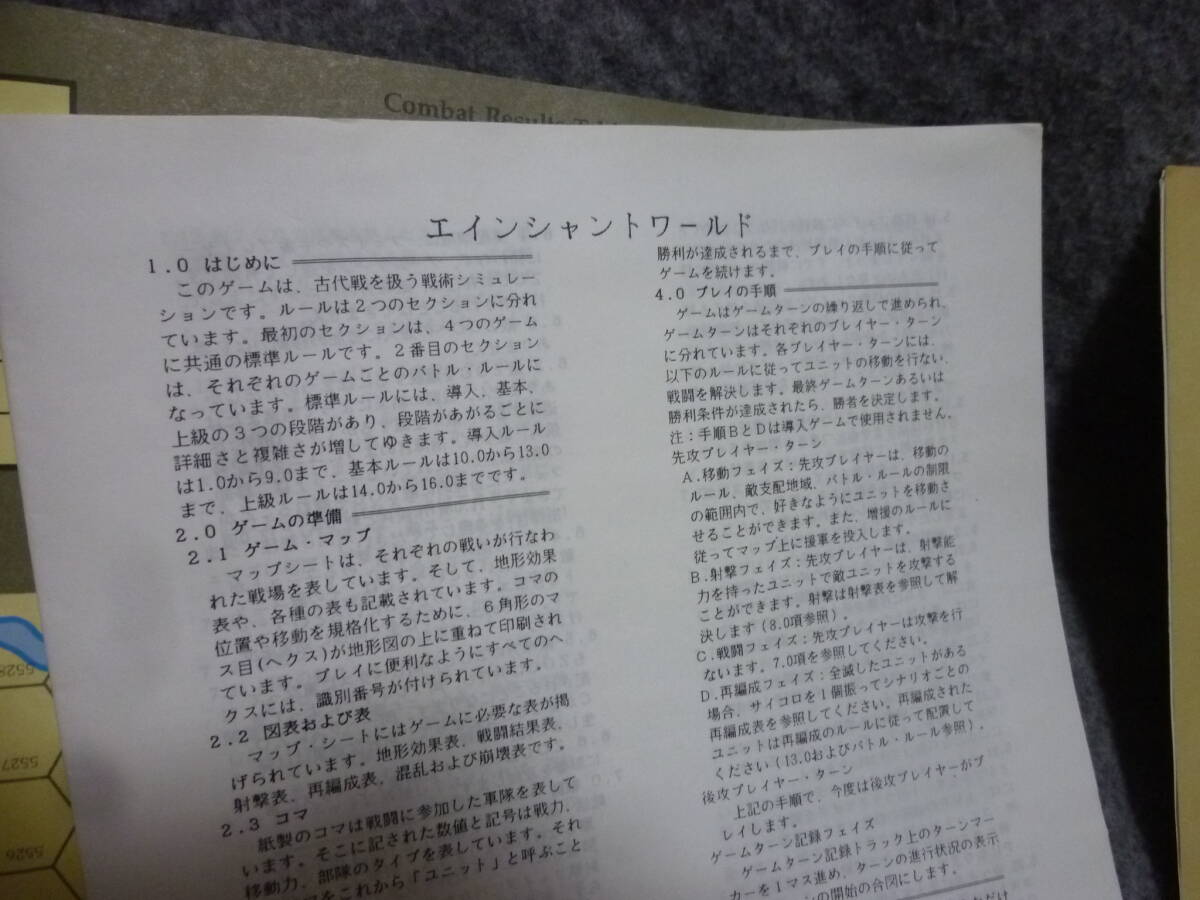 Combat Results
エインシャントワールド
1.0 はじめに
このゲームは、古代戦を扱う戦術シミュレー
ションです。ルールは２つのセクションに分れ
ています。最初のセクションは、４つのゲーム
に共通の標準ルールです。２番目のセクション
は、それぞれのゲームごとのバトル・ルールに
なっています。標準ルールには、導入、基本、
上級の３つの段階があり、段階があがるごとに
詳細さと複雑さが増してゆきます。導入ルール
は1.0から9.0まで、基本ルールは10.0から13.0
まで、上級ルールは14.0から16.0までです。
2.0 ゲームの準備
2.1 ゲーム・マップ
マップシートは、それぞれの戦いが行なわ
れた戦場を表しています。そして、地形効果
表や、各種の表も記載されています。コマの
位置や移動を規格化するために、６角形のマ
ス目(ヘクス)が地形図の上に重ねて印刷され
ています。プレイに便利なようにすべてのヘ
クスには、識別番号が付けられています。
2.2 図表および表
マップ・シートにはゲームに必要な表が掲
げられています。地形効果表、戦闘結果表、
射撃表、再編成表、混乱および崩壊表です。
2.3 コマ
紙製のコマは戦闘に参加した軍隊を表して
います。そこに記された数値と記号は戦力、
移動力、部隊のタイプを表しています。それ
をこれから「ユニット」と呼ぶこと
勝利が達成されるまで、プレイの手順に従って
ゲームを続けます。
4.0 プレイの手順
ゲームはゲームターンの繰り返しで進められ、
ゲームターンはそれぞれのプレイヤー・ターン
に分れています。各プレイヤー・ターンには、
以下のルールに従ってユニットの移動を行ない、
戦闘を解決します。最終ゲームターンあるいは
勝利条件が達成されたら、勝者を決定します。
注：手順ＢとＤは導入ゲームで使用されません。
先攻プレイヤー・ターン
A.移動フェイズ：先攻プレイヤーは、移動の
ルール、敵支配地域、バトル・ルールの制限
の範囲内で、好きなようにユニットを移動さ
せることができます。また、増援のルールに
従ってマップ上に援軍を投入します。
B.射撃フェイズ：先攻プレイヤーは、射撃能
力を持ったユニットで敵ユニットを攻撃する
ことができます。射撃は射撃表を参照して解
決します(8.0項参照)。
C.戦闘フェイズ：先攻プレイヤーは攻撃を行
ないます。7.0項を参照してください。
D.再編成フェイズ：全滅したユニットがある
場合、サイコロを１個振ってシナリオごとの
再編成表を参照してください。再編成された
ユニットは再編成のルールに従って配置して
ください(13.0およびバトル・ルール参照)。
後攻プレイヤー・ターン
上記の手順で、今度は後攻プレイヤーがプ
レイします。
ゲームターン記録フェイズ
ゲームターン記録トラック上のターンマー
カーを１マス進め、ターンの進行状況の表示
ンの開始の合図にします。
5528
5527
5526